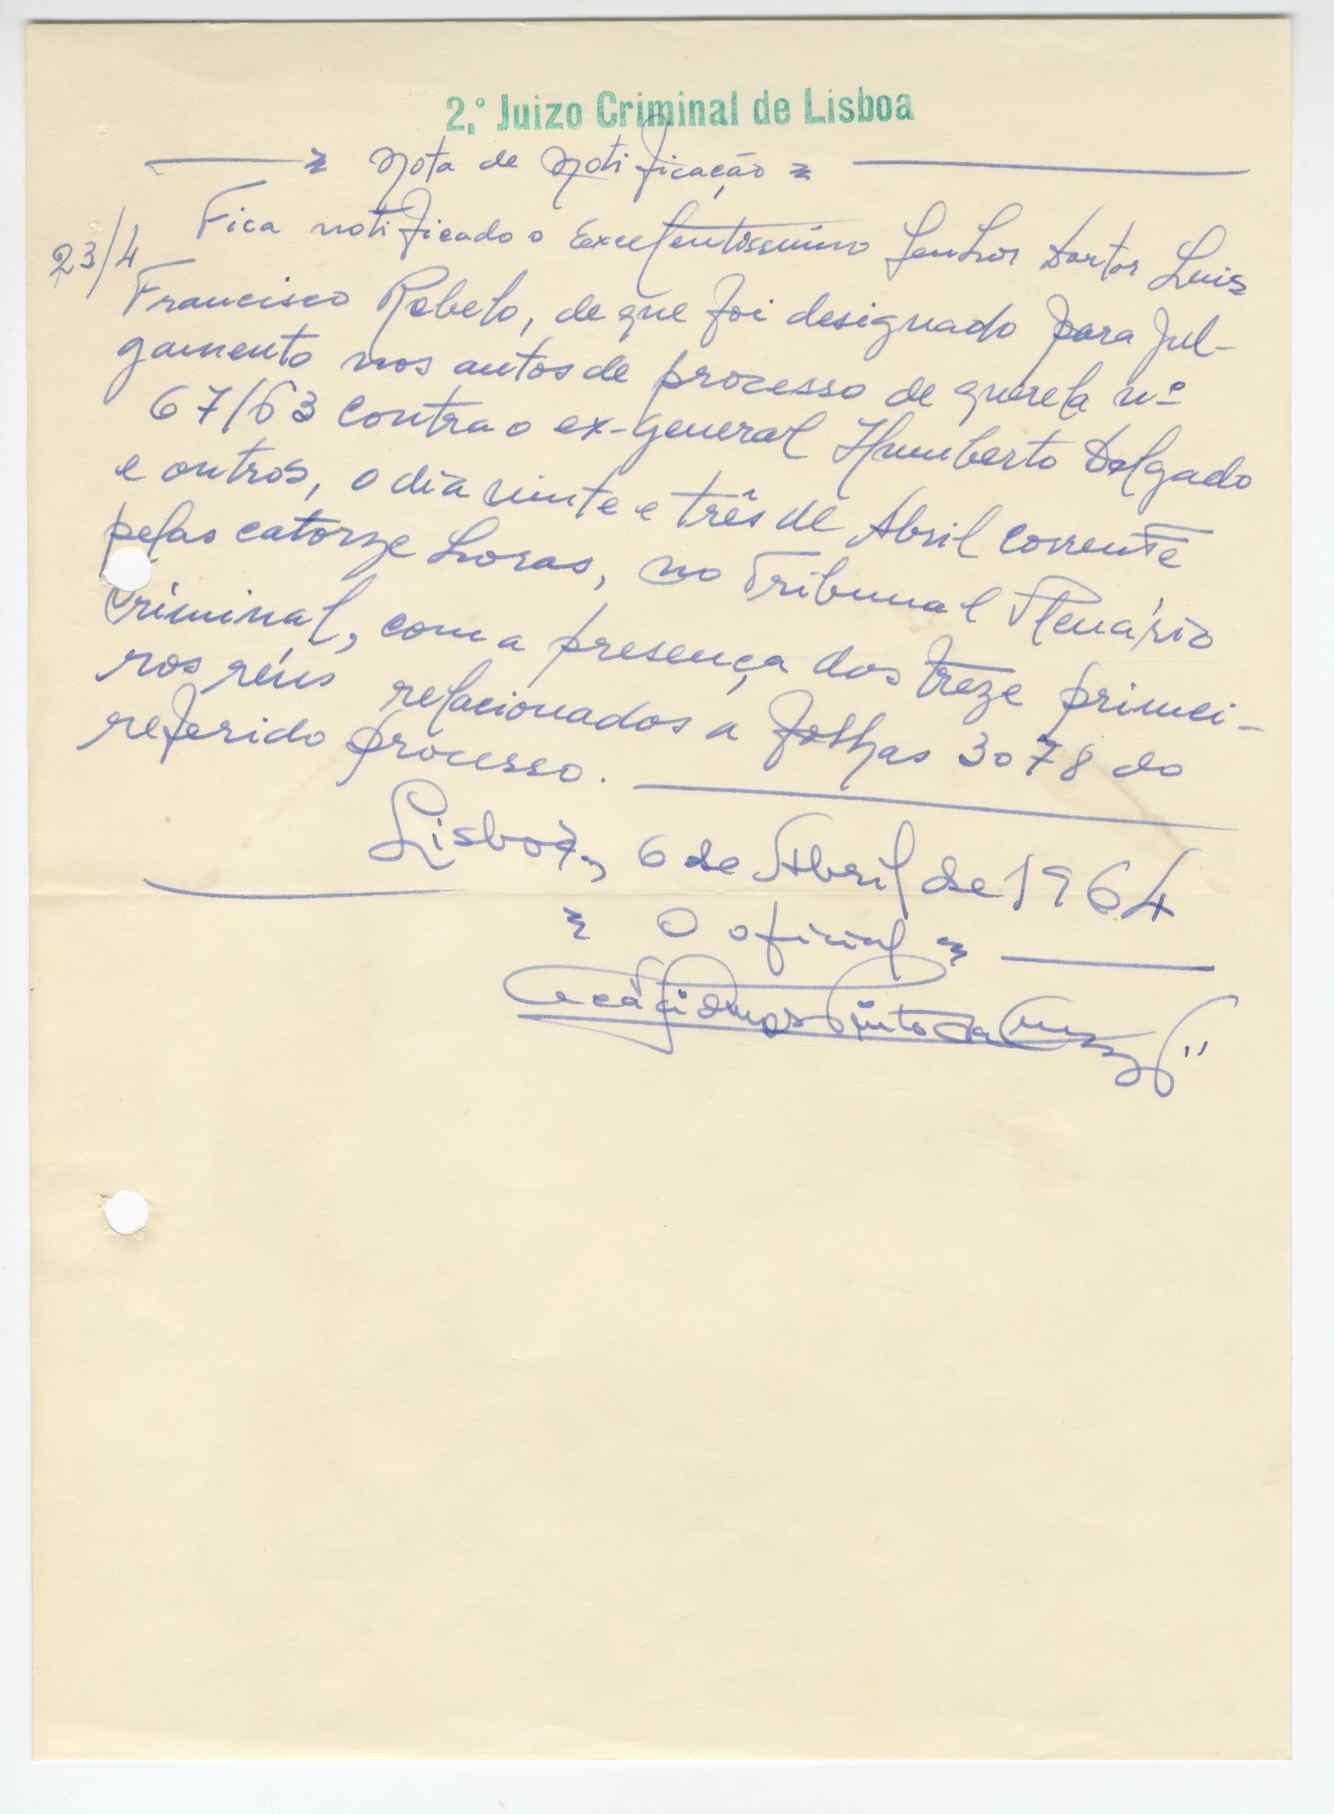 2.º Juizo Criminal de Lisboa
Nota de Notificação
23/4
Fica notificado o Excelentissimo Senhor Doutor Luis
Francisco Rebelo, de que foi designado para jul-
gamento nos autos de processo de querela nº
67/63 contra o ex-general Humberto Delgado
e outros, o dia vinte e três de Abril corrente
pelas catorze horas, no Tribunal Plenário
Criminal, com a presença dos treze primei-
ros réus relacionados a folhas 3078 do
referido processo.
Lisboa, 6 de Abril de 1964
O oficial
Pinto da